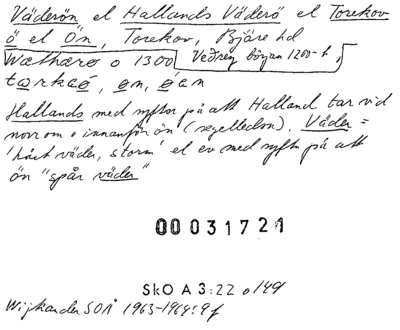 Väderön el Hallands Väderö el Torekov
ö el Ön, Torekov, Bjäre hd
Wæthærø o 1300 Veðrey början 1200-t,
tɷrkɷö, øn, øen
Hallands med syftn på att Halland tar vid
norr om o innanför ön (segelleden). Väder =
'hårt väder, storm' el ev med syftn på att
ön "spår väder"
00031721
SkO A 3:22 o 149
Wijkander SOÅ 1963-1964:9f